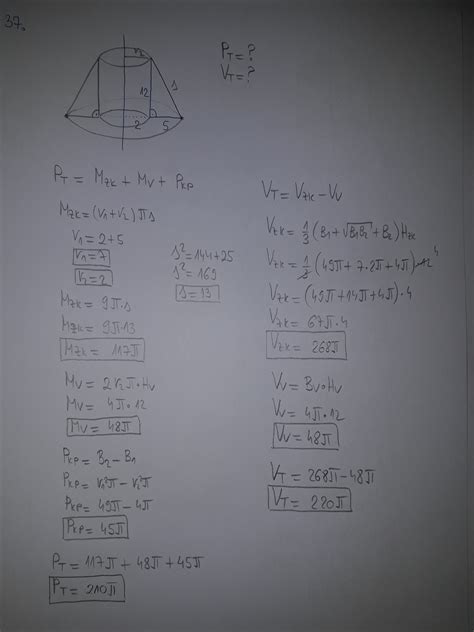 37.
r₂
12
s
2
5
P_T = ?
V_T = ?
P_T = M_ZK + M_V + P_KP
M_ZK = (r₁ + r₂) π s
r₁ = 2 + 5
r₁ = 7
r₂ = 2
s² = 144 + 25
s² = 169
s = 13
M_ZK = 9π · s
M_ZK = 9π · 13
M_ZK = 117π
M_V = 2r₂π · H_V
M_V = 4π · 12
M_V = 48π
P_KP = B₂ − B₁
P_KP = r₁²π − r₂²π
P_KP = 49π − 4π
P_KP = 45π
P_T = 117π + 48π + 45π
P_T = 210π
V_T = V_ZK − V_V
V_ZK = 1/3 (B₁ + √B₁B₂ + B₂) H_ZK
V_ZK = 1/3 (49π + 7·2π + 4π) · 12 4
V_ZK = (49π + 14π + 4π) · 4
V_ZK = 67π · 4
V_ZK = 268π
V_V = B_V · H_V
V_V = 4π · 12
V_V = 48π
V_T = 268π − 48π
V_T = 220π